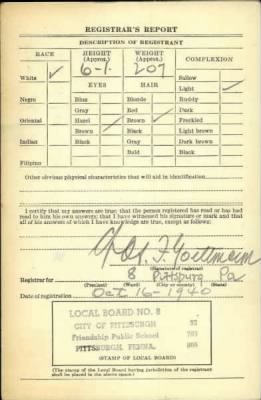 REGISTRAR'S REPORT
DESCRIPTION OF REGISTRANT
RACE HEIGHT (Approx.) WEIGHT (Approx.) COMPLEXION
White ✓ 6-1. 207 Sallow
EYES HAIR Light ✓
Negro Blue Blonde Ruddy
Gray Red Dark
Oriental Hazel ✓ Brown ✓ Freckled
Brown Black Light brown
Indian Black Gray Dark brown
Bald Black
Filipino
Other obvious physical characteristics that will aid in identification
I certify that my answers are true; that the person registered has read or has had
read to him his own answers; that I have witnessed his signature or mark and that
all of his answers of which I have knowledge are true, except as follows:
(Signature of registrar)
Registrar for 8 Pittsburg Pa
(Precinct) (Ward) (City or county) (State)
Date of registration Oct 16-1940
LOCAL BOARD NO. 8
CITY OF PITTSBURGH
Friendship Public School
PITTSBURGH, PENNA.
(STAMP OF LOCAL BOARD)
(The stamp of the Local Board having jurisdiction of the registrant
shall be placed in the above space.)